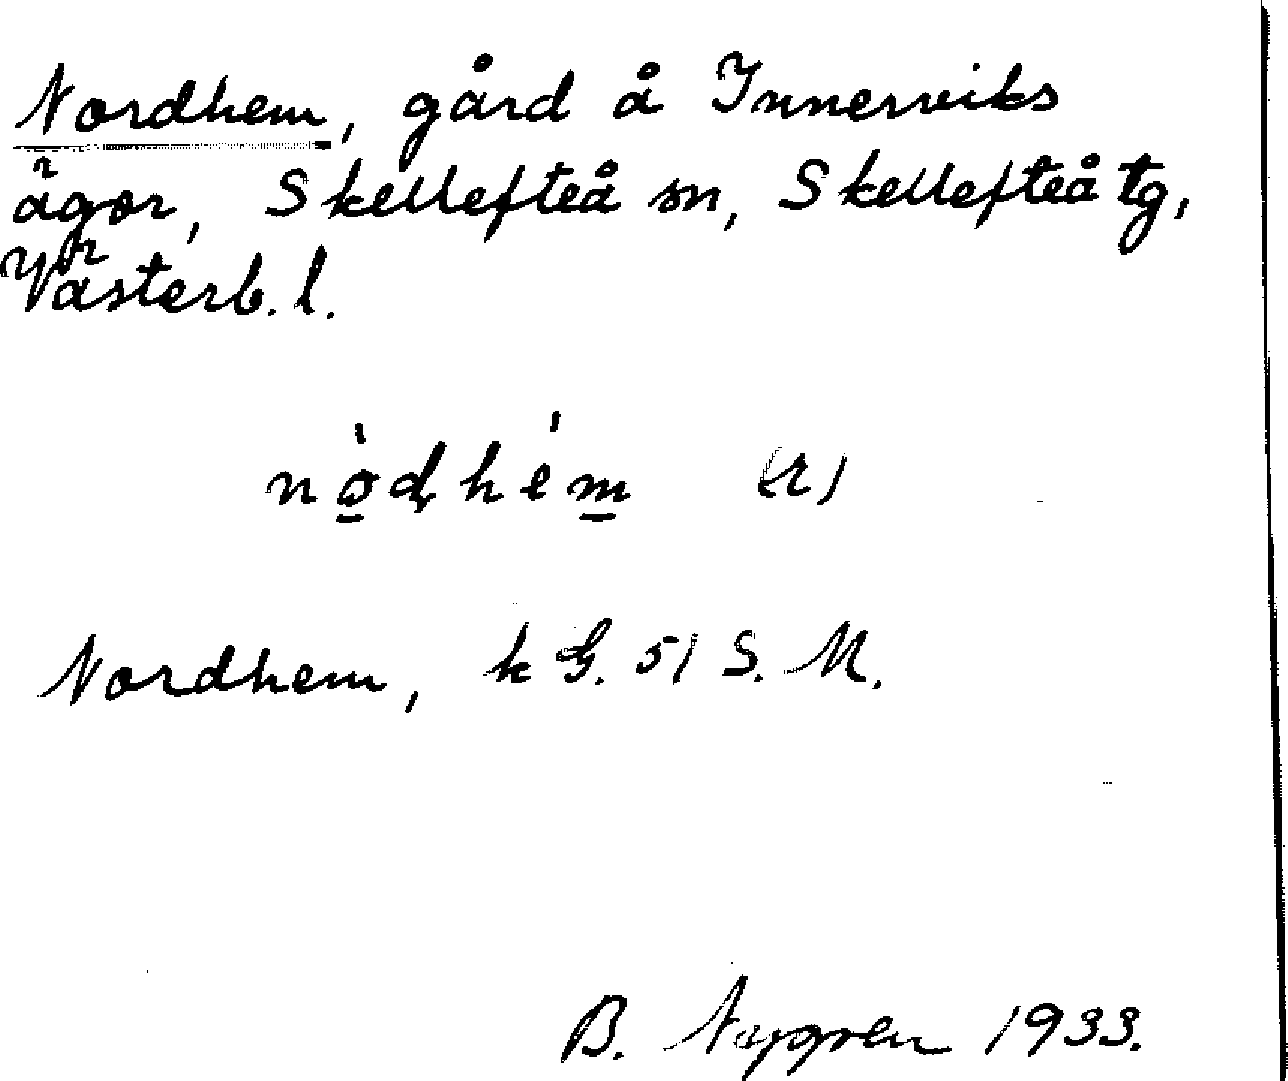 Nordhem, gård å Innerviks
ägor, Skellefteå sn, Skellefteå tg,
Västerb. l.
nò̱ḍhém̱ (r)
Nordhem, k G. 51 S. M.
B. Nygren 1933.